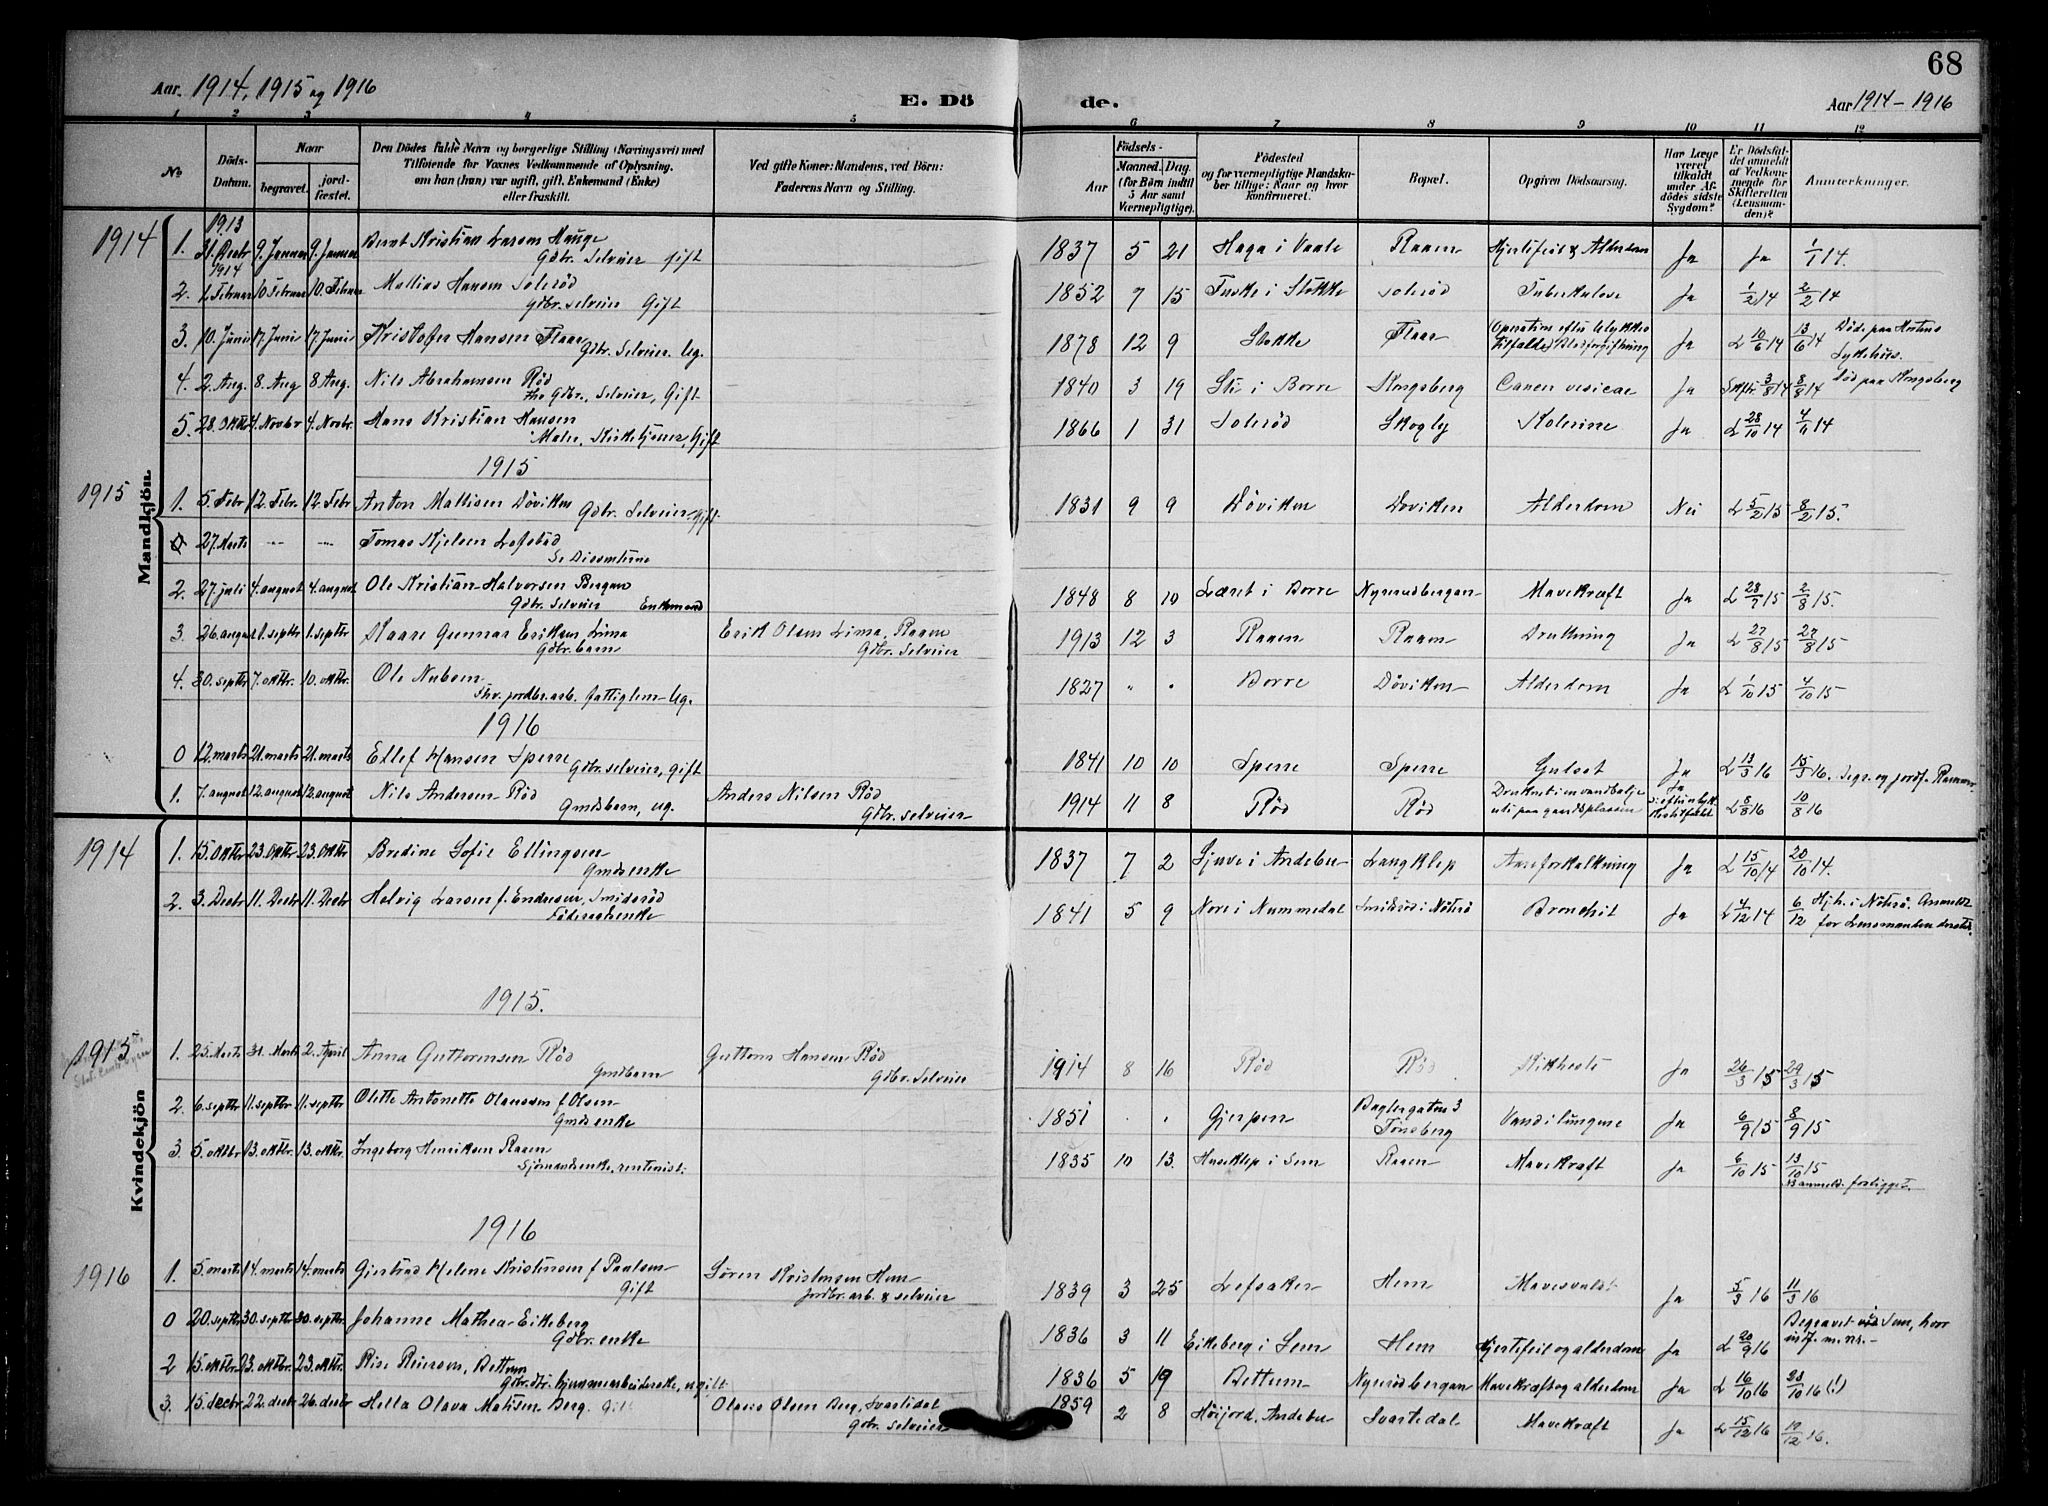 68
Aar. 1914, 1915 og 1916
E. Dö
de.
Aar 1914 – 1916
1 2 3 4 5 6 7 8 9 10 11 12
No
Döds-Datum.
Naar
begravet.
jord-fæstet.
Den Dödes fulde Navn og borgerlige Stilling (Næringsvei) med
Tilföiende for Voxnes Vedkommende af Oplysning,
om han (hun) var ugift, gift, Enkemand (Enke)
eller fraskilt.
Ved gifte Koner: Mandens, ved Börn:
Faderens Navn og Stilling.
Födsels-
Aar
Maaned. Dag.
(for Börn indtil
5 Aar samt
Værnepligtige).
Födested
og for værnepligtige Mandska-
ber tillige: Naar og hvor
konfirmeret.
Bopæl.
Opgiven Dödsaarsag.
Har Læge
været
tilkaldt
under Af-
dödes sidste
Sygdom?
Er Dödsfal-
det anmeldt
af Vedkom-
mende for
Skifteretten
(Lensman-
den)?
Anmærkninger.
Mandkjön.
1914
1913
1. 31. Decbr 9. Januar 9. Januar Bernt Kristian Larsen Hauge 1837 5 21 Haga i Vaale Raaen Hjertefeil & Alderdom Ja Ja 1/1 14.
Gdbr. Selveier gift
1914
2. 2. Februar 10 Februar 10. Februar Mathias Hansen Solerød 1852 7 15 Fuske i Stokke Solerød Tuberkulose Ja 1/2 14 2/2 14
Gdbr. selveier Gift
3. 10. Juni 17. Juni 17. Juni Kristofer Hansen Flaar 1878 12 9 Stokke Flaar (Operation efter Ulykkestilfalde) Blodforgiftning Ja L 10/6 14 13/6 14 Døde paa Hortens Sykehus.
Gdbr. Selveier Ug.
4. 2. Aug. 8. Aug 8 Aug. Nils Abrahamsen Rød 1840 3 19 Sti i Borre Kongsberg Cancer vesicae Ja Skftr 3/8 14 8/8 14 Død paa Kongsberg
fhv Gdbr., Selveier, Gift
5. 28. Oktbr 4. Novbr 4. Novbr. Hans Kristian Hansen 1866 1 31 Solerød Skogly Kolerine Ja L 28/10 14 4/11 14
Maler, Kirketjener, Gift
1915
1915
1. 5. Febr 12. Febr. 12. Febr Anton Mathisen Døviken 1831 9 9 Døviken Døviken Alderdom Nei L 5/2 15 8/2 15.
Gdbr. Selveier. Gift.
0 27. Marts Tomas Kjelsen Lefsbød
Se Dissenterne
2. 27. juli 4. august 4. august Ole Kristian Halvorsen Bergan 1848 8 10 Læret i Borre Nyerudbergan Mavekræft Ja L 28/7 15 2/8 15.
Gdbr. selveier Enkemand
3. 26. august 1. septbr 1. septbr Kaare Gunnar Eriksen Lima Erik Olsen Lima, Raaen 1913 12 3 Raaen Raaen Drukning Ja L 27/8 15 27/8 15
Gdbr. barn Gdbr. Selveier
4. 30. septbr 7. oktbr. 10. oktbr. Ole Nubsen 1827 " " Borre Døviken Alderdom Ja L 1/10 15 4/10 15
Fhv. jordbr. arb. fattiglem. Ug.
1916
0 12. marts 21. marts 21. marts Ellef Hansen Sperre 1841 10 10 Sperre Sperre Gulsot Ja L 13/3 16 15/3 16. Begr. og jordf. Ramnes
Gdbr. selveier, gift
1. 7. august 12. august 12. august Nils Andersen Rød Anders Nilsen Rød 1914 11 8 Rød Rød Druknet i en vandbalje ute paa gaardsplassen Ja L 8/8 16 10/8 16
Gmdsbarn, ug. Gdbr. selveier
Kvindekjön
1914
1. 15. Oktbr 23. Oktbr 23. Oktbr Bredine Sofie Ellingsen 1837 7 2 Sjuve i Andebu Langklep Aareforkalkning Ja L 15/10 14 20/10 14.
Gmdsenke
2. 3. Decbr 11. Decbr 11. Decbr Helvig Larsen f. Endresen, Smidsrød 1841 5 9 Nore i Nummedal Smidsrød i Nøterø Bronchit Ja L 4/12 14 6/12 Hjh. i Nøterø. Anmeldt for Lensmanden dersteds.
Føderaadsenke
1915.
1915
1. 25. Marts 31. Marts 2. April Anna Guttormsen Rød Guttorm Hansen Rød 1914 8 16 Rød Rød Kikhoste Ja 26/3 15 29/3 15
Gmdbarn Gdbr. Selveier
2. 6. septbr 11. septbr 11. septbr Olette Antonette Olaussen f. Olsen 1851 . . Gjerpen Baglergaten 3 Tønsberg Vand i lungene Ja 6/9 15 8/9 15
Gmdsenke
3. 5. oktbr 13. oktbr. 13. oktbr. Ingeborg Henriksen Raaen 1835 10 13. Husklep i Sem Raaen Mavekræft Ja 6/10 15 13/10 15
Sjømandsenke, rentenist. anmeld. forligget.
1916
1916
1. 5. marts 14. marts 14. marts Gjertrud Helene Kristensen f Paulsen Søren Kristensen Hem 1839 3 25 Lefsaker Hem Ja 5/3 16 11/3 16
Gift jordbr. arb. & selveier
0 20. septbr 30. septbr 30. septbr Johanne Mathea Eikeberg 1836 3 11 Eikeberg i Sem Hem Hjertefeil og alderdom Ja L 20/9 16 Begravet i Sem, hvor indf. m. nr.
Gdbr. enke
2 15. oktbr 23. oktbr 23. oktbr. Reiersen, Bettum 1836 5 19 Bettum Nyerødbergan Mavekræft og alderdom Ja L 16/10 16 23/10 16 (!)
Gdbr. dtr. hjemmearbeiderske, ugift
3. 15. decbr 22. decbr 26. decbr Hella Olava Mathisen Berg. Gift Olaus Olsen Berg, Svartsdal 1859 2 8 Høijord, Andebu Svartedal Mavekræft Ja L 15/12 16 19/12 16.
Gdbr. selveier